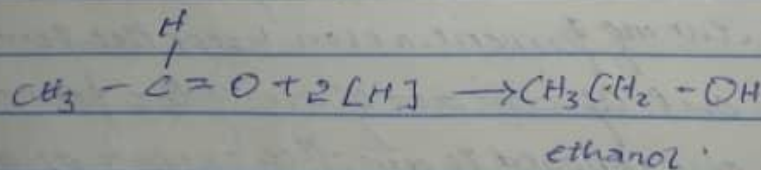 H
CH₃ - C = O + 2[H] → CH₃CH₂ - OH
ethanol.